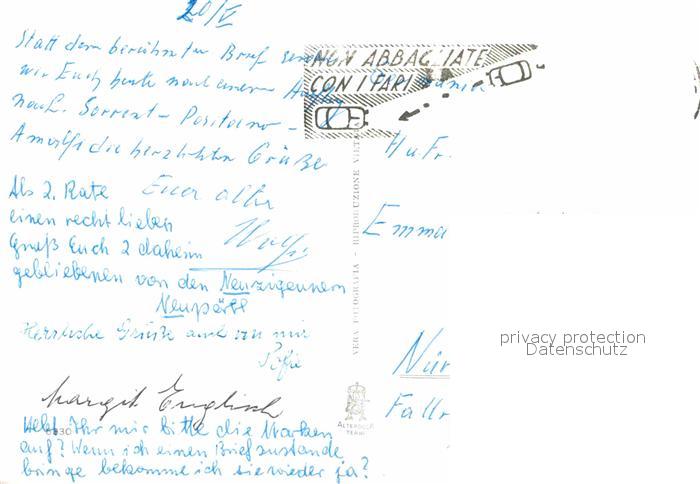 20/V
Statt dem berühmten Brief senden
wir Euch heute nach einem Ausflug
nach Sorrent - Positano -
Amalfi die herzlichsten Grüße
Euer alter
Wolfi
Als 2. Rate
einen recht lieben
Gruß Euch 2 daheim
gebliebenen von den Neuzigeunern
Herzliche Grüße auch von mir
Margit Englisch
Hebt Ihr mir bitte die Marken
auf? Wenn ich einen Brief zustande
bringe bekomme ich sie wieder ja?
NON ABBAGLIATE
CON I FARI
VERA FOTOGRAFIA - RIPRODUZIONE
ALTEROCCA
TERNI
HuFr.
Emma
Nür
privacy protection
Datenschutz